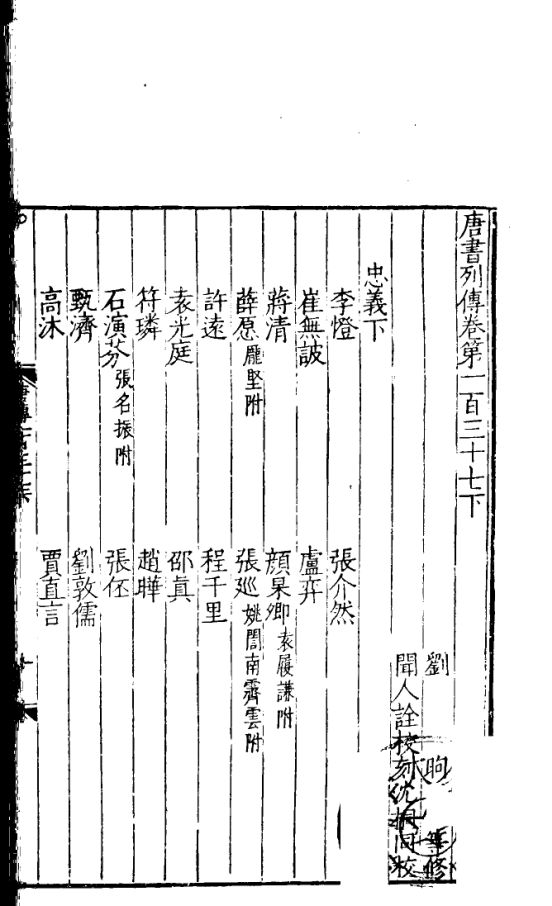 唐書列傳卷第一百三十七下
劉昫等修
聞人詮校刻沈桐同校
忠義下
李憕 張介然
崔無詖 盧弈
蔣清 顏杲卿袁履謙附
薛愿龐堅附 張巡姚誾南霽雲附
許遠 程千里
袁光庭 邵眞
符璘 趙曄
石演芬張名振附 張伾
甄濟 劉敦儒
高沐 賈直言